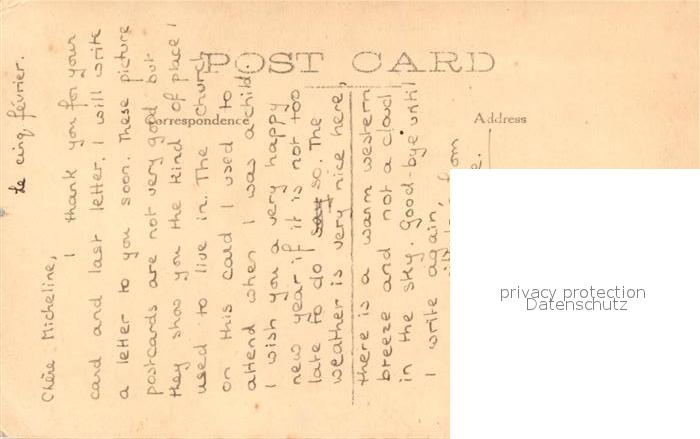 Le cinq février.
Chère Micheline,
I thank you for your
card and last letter. I will write
a letter to you soon. These picture
postcards are not very good but
they show you the kind of place I
used to live in. The Church
on this card I used to
attend when I was a child.
I wish you a very happy
new year if it is not too
late to do so. The
weather is very nice here,
there is a warm western
breeze and not a cloud
in the sky. Good-bye until
I write again,
from
POST CARD
Correspondence
Address
privacy protection
Datenschutz